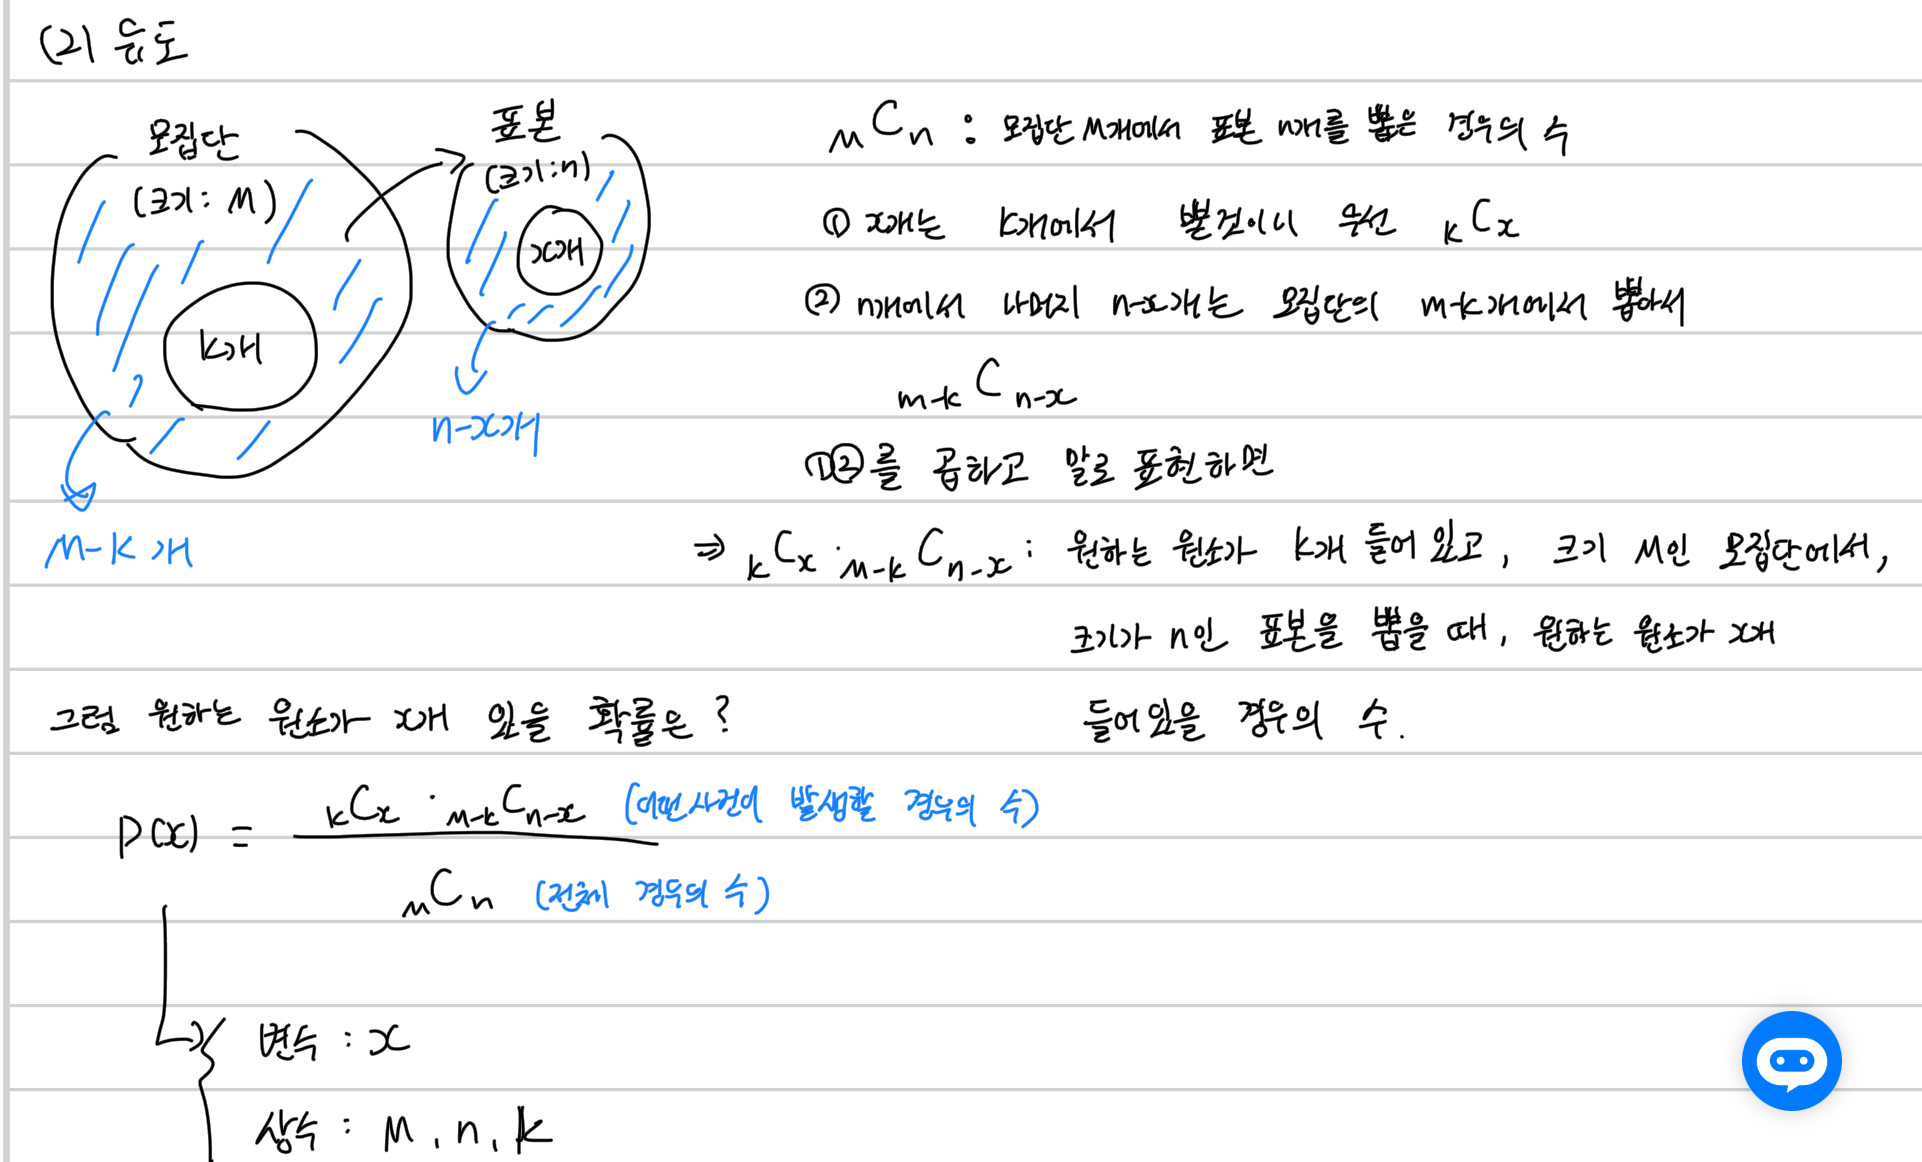 (2) 유도
모집단
(크기: M)
k개
M-k개
표본
(크기:n)
x개
n-x개
MCn : 모집단 M개에서 표본 n개를 뽑은 경우의 수
① x개는 k개에서 뽑을것이니 우선 kCx
② n개에서 나머지 n-x개는 모집단의 m-k개에서 뽑아서
m-kCn-x
①②를 곱하고 말로 표현하면
⇒ kCx · M-kCn-x : 원하는 원소가 k개 들어 있고, 크기 M인 모집단에서,
크기가 n인 표본을 뽑을 때, 원하는 원소가 x개
들어있을 경우의 수.
그럼 원하는 원소가 x개 있을 확률은?
P(x) = kCx · M-kCn-x (어떤사건이 발생할 경우의 수)
MCn (전체 경우의 수)
변수 : x
상수 : M, n, k